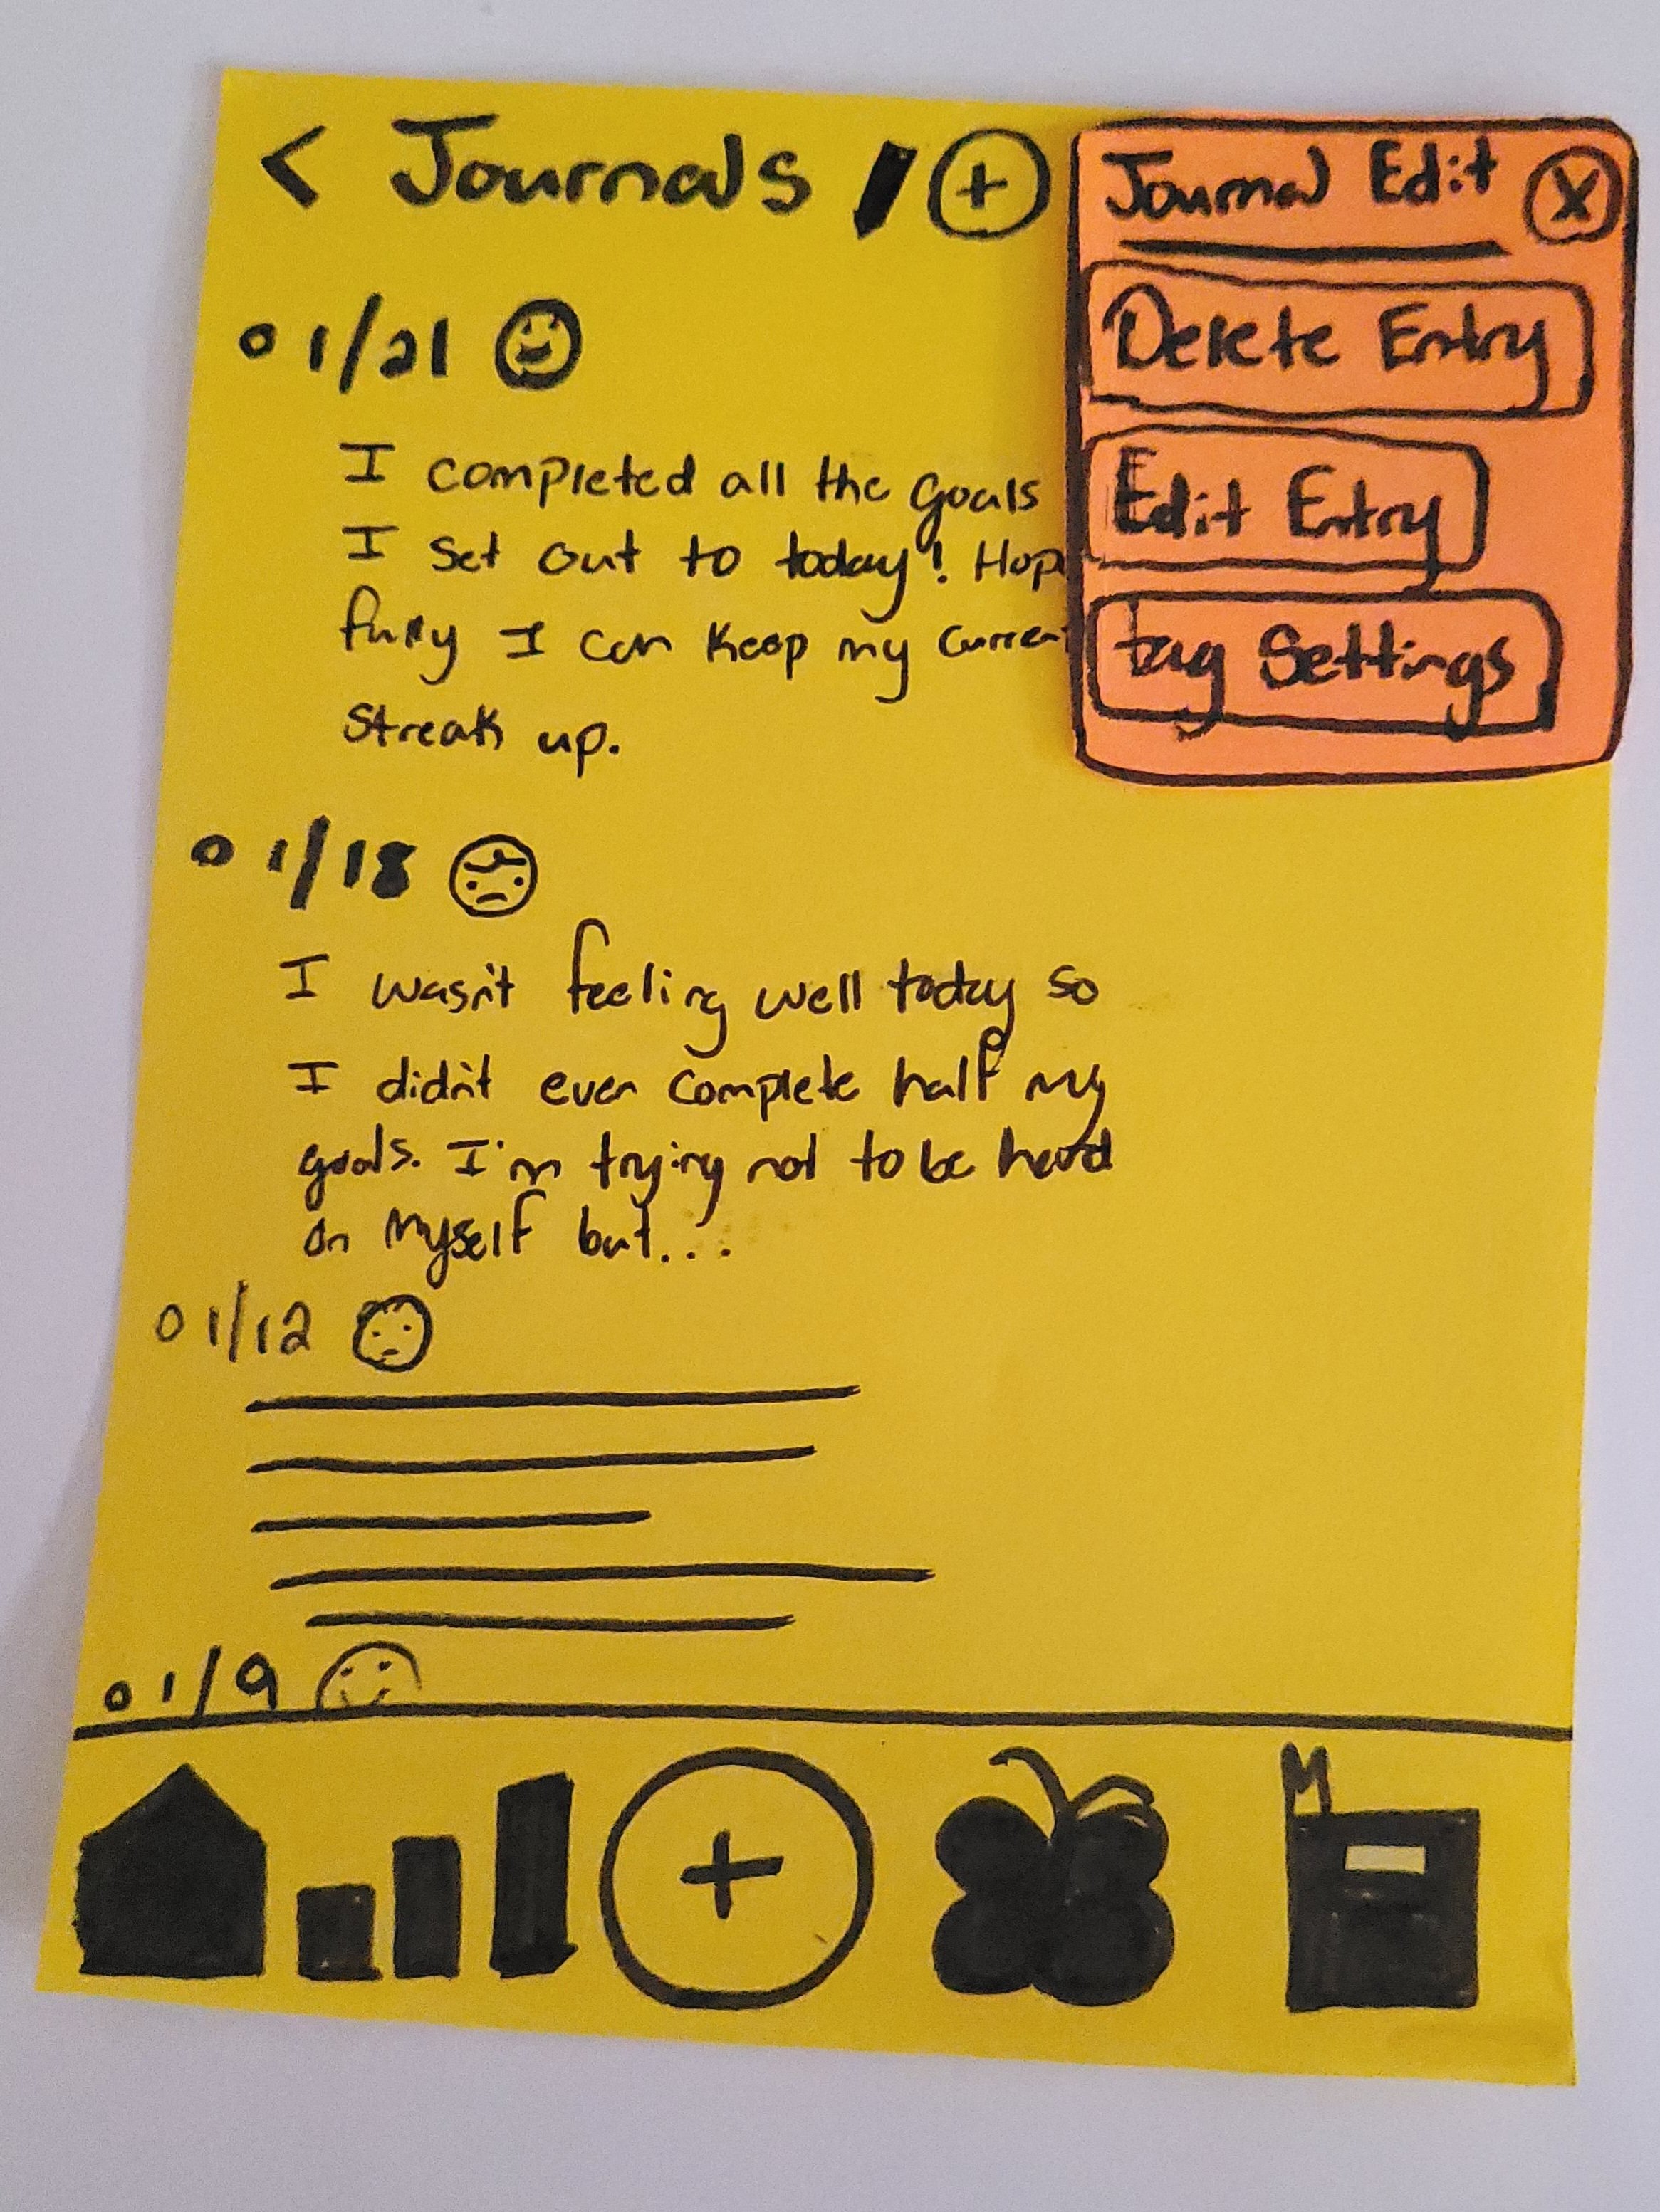 < Journals +
Journal Edit X
Delete Entry
Edit Entry
tag Settings
1/21
I completed all the goals
I set out to today! Hop
fully I can keep my curren
streak up.
1/18
I wasn't feeling well today so
I didn't even complete half my
goals. I'm trying not to be hard
on myself but...
1/12
1/9
+